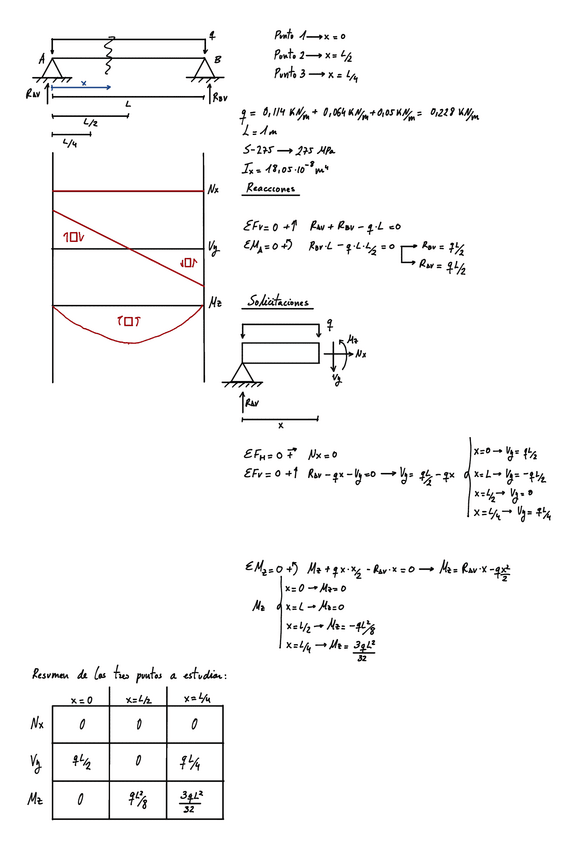 Punto 1 → x = 0
Punto 2 → x = L/2
Punto 3 → x = L/4
q
A
B
x
RAV
RBV
L
L/2
L/4
q = 0,114 KN/m + 0,064 KN/m + 0,05 KN/m = 0,228 KN/m
L = 1 m
S-275 → 275 MPa
Ix = 18,05·10⁻⁸ m⁴
Reacciones
Nx
Vy
Mz
ΣFv = 0 +↑ RAV + RBV - q·L = 0
ΣMA = 0 +↶ RBV·L - q·L·L/2 = 0 → RBV = qL/2
→ RAV = qL/2
Solicitaciones
q
Mz
Nx
Vy
RAV
x
ΣFH = 0 +→ Nx = 0
ΣFv = 0 +↑ RAV - qx - Vy = 0 → Vy = qL/2 - qx
x=0 → Vy = qL/2
x=L → Vy = -qL/2
x=L/2 → Vy = 0
x=L/4 → Vy = qL/4
ΣMz = 0 +↶ Mz + qx·x/2 - RAV·x = 0 → Mz = RAV·x - qx²/2
Mz
x=0 → Mz=0
x=L → Mz=0
x=L/2 → Mz= -qL²/8
x=L/4 → Mz= 3qL²/32
Resumen de los tres puntos a estudiar:
x=0 x=L/2 x=L/4
Nx 0 0 0
Vy qL/2 0 qL/4
Mz 0 qL²/8 3qL²/32